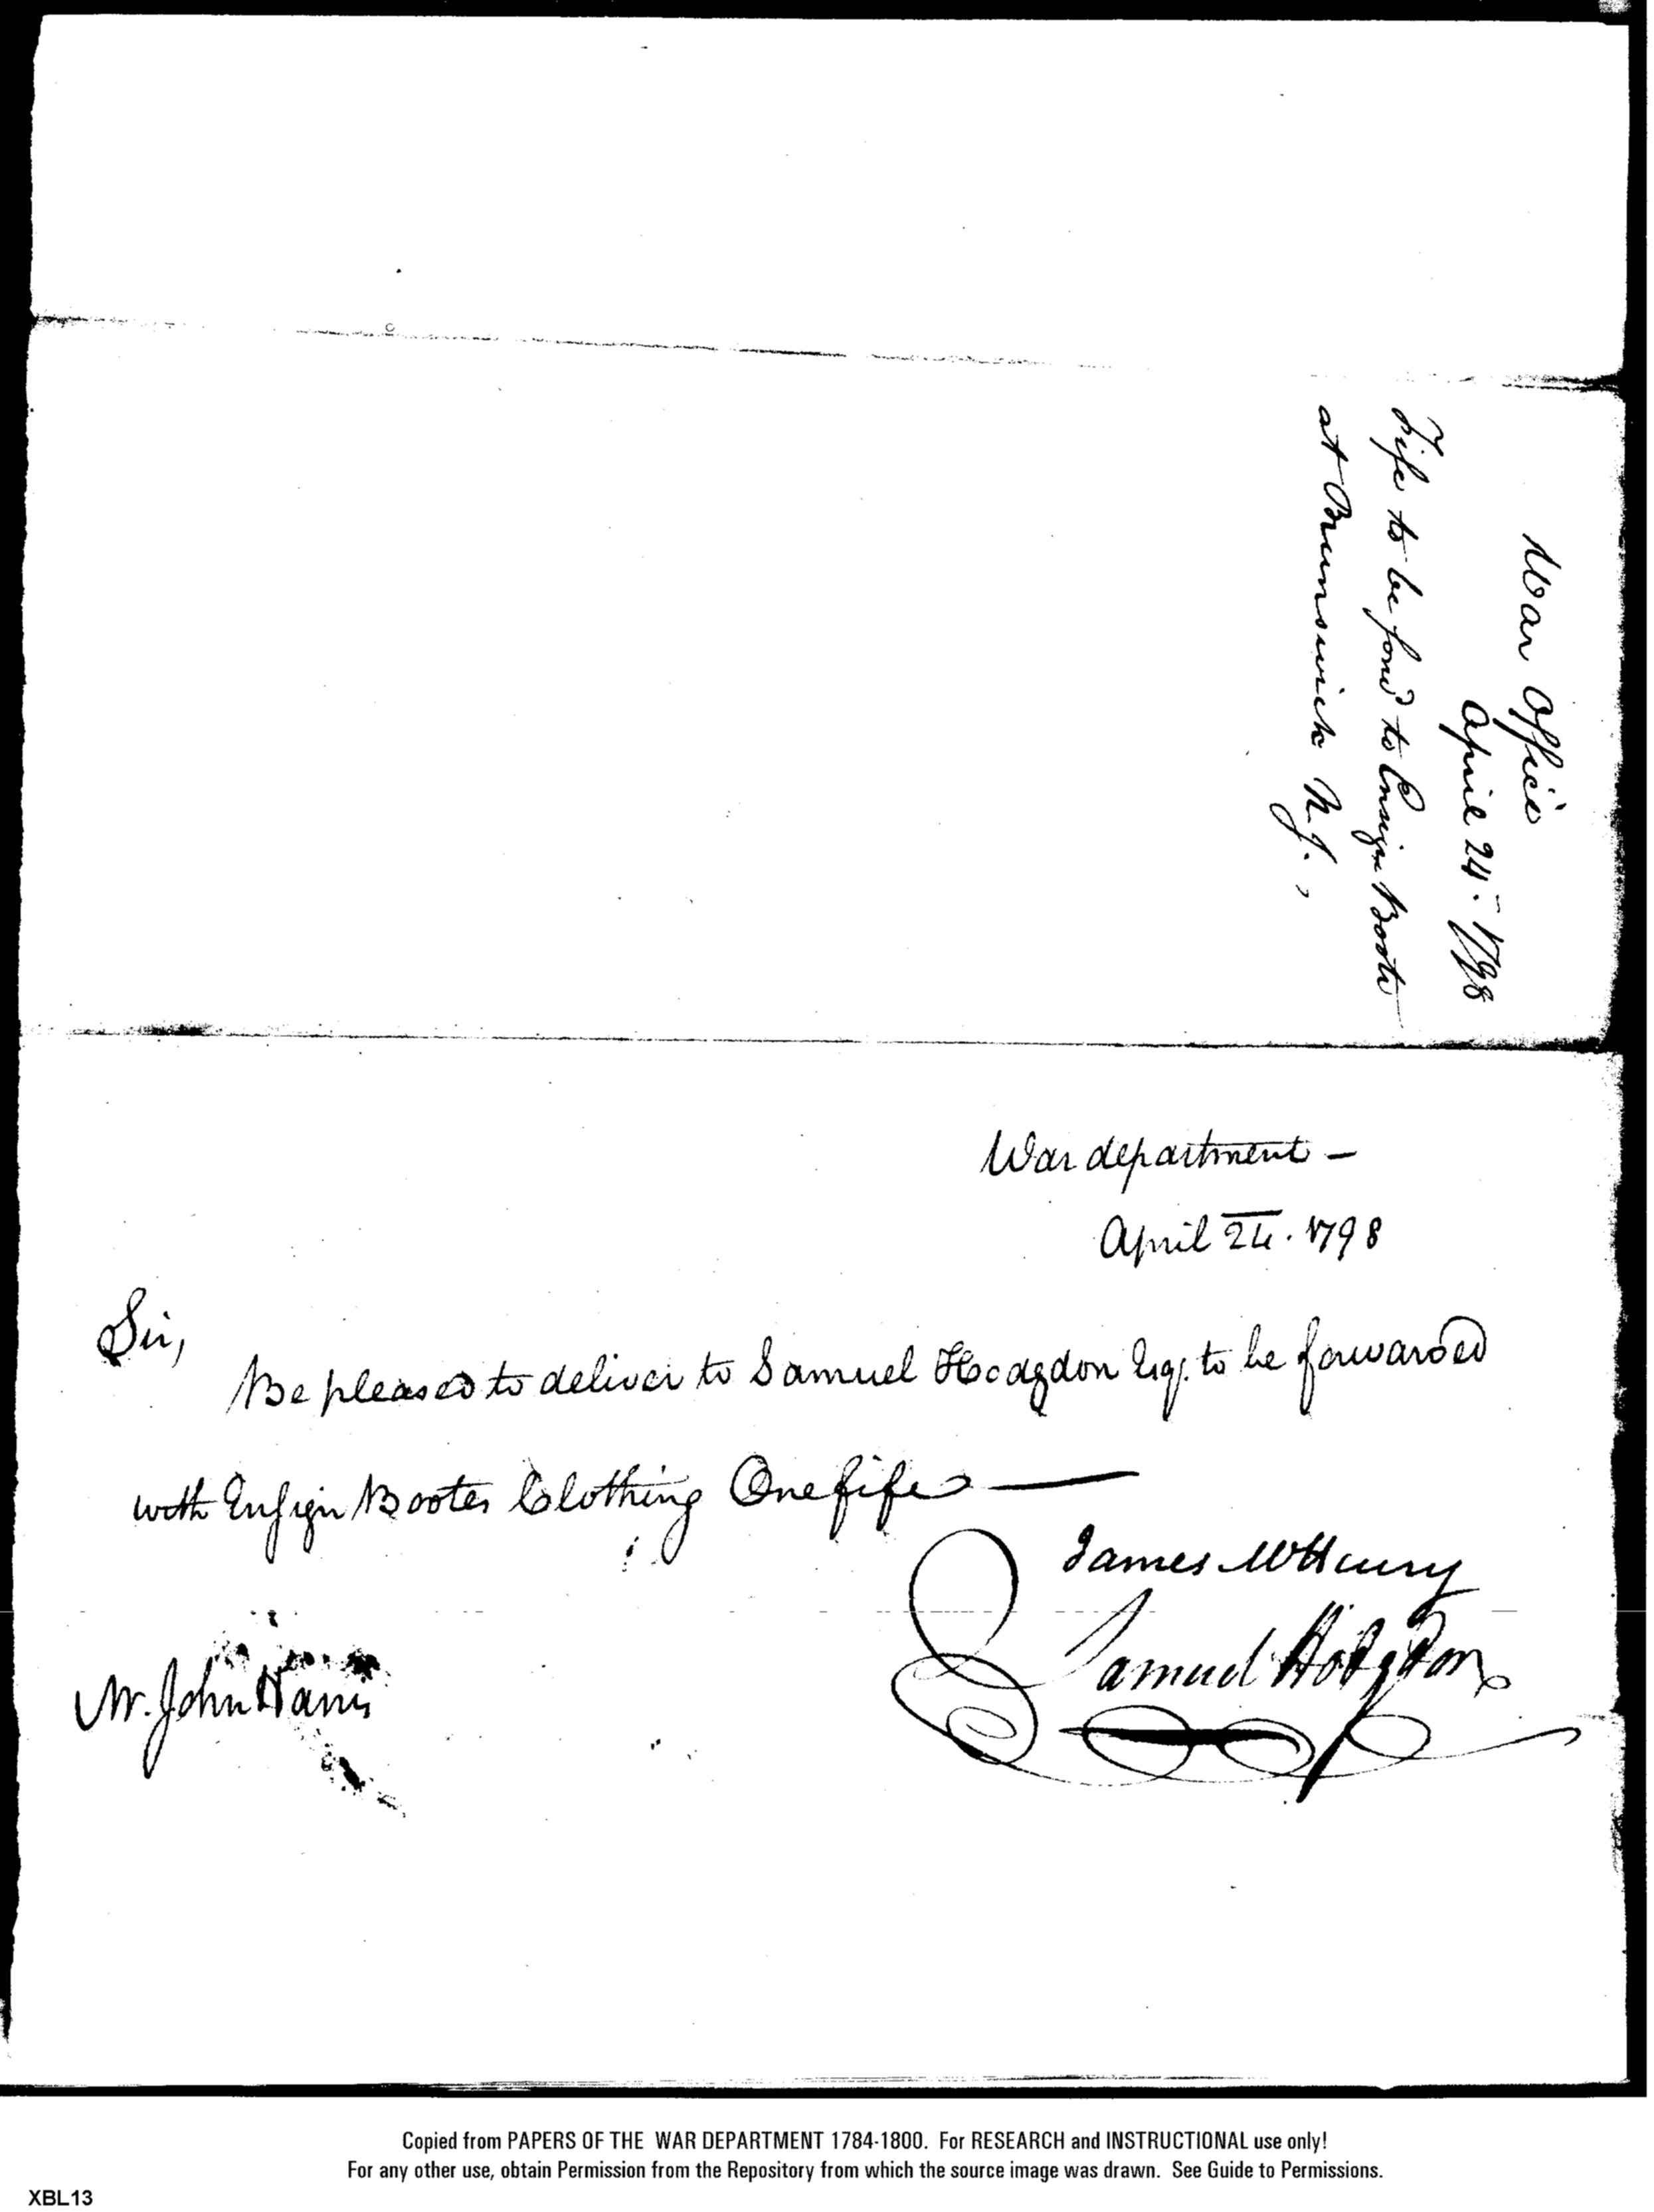 War Office
April 24. 1798
Fife to be ford to Ensign Boote
at Brunswick N.J.,
War department –
April 24. 1798
Sir,
Be pleased to deliver to Samuel Hodgdon Esq. to be forwarded
with Ensign Bootes Clothing One fife —
James McHenry
Samuel Hodgdon
Mr. John Harris
Copied from PAPERS OF THE WAR DEPARTMENT 1784-1800. For RESEARCH and INSTRUCTIONAL use only!
For any other use, obtain Permission from the Repository from which the source image was drawn. See Guide to Permissions.
XBL13